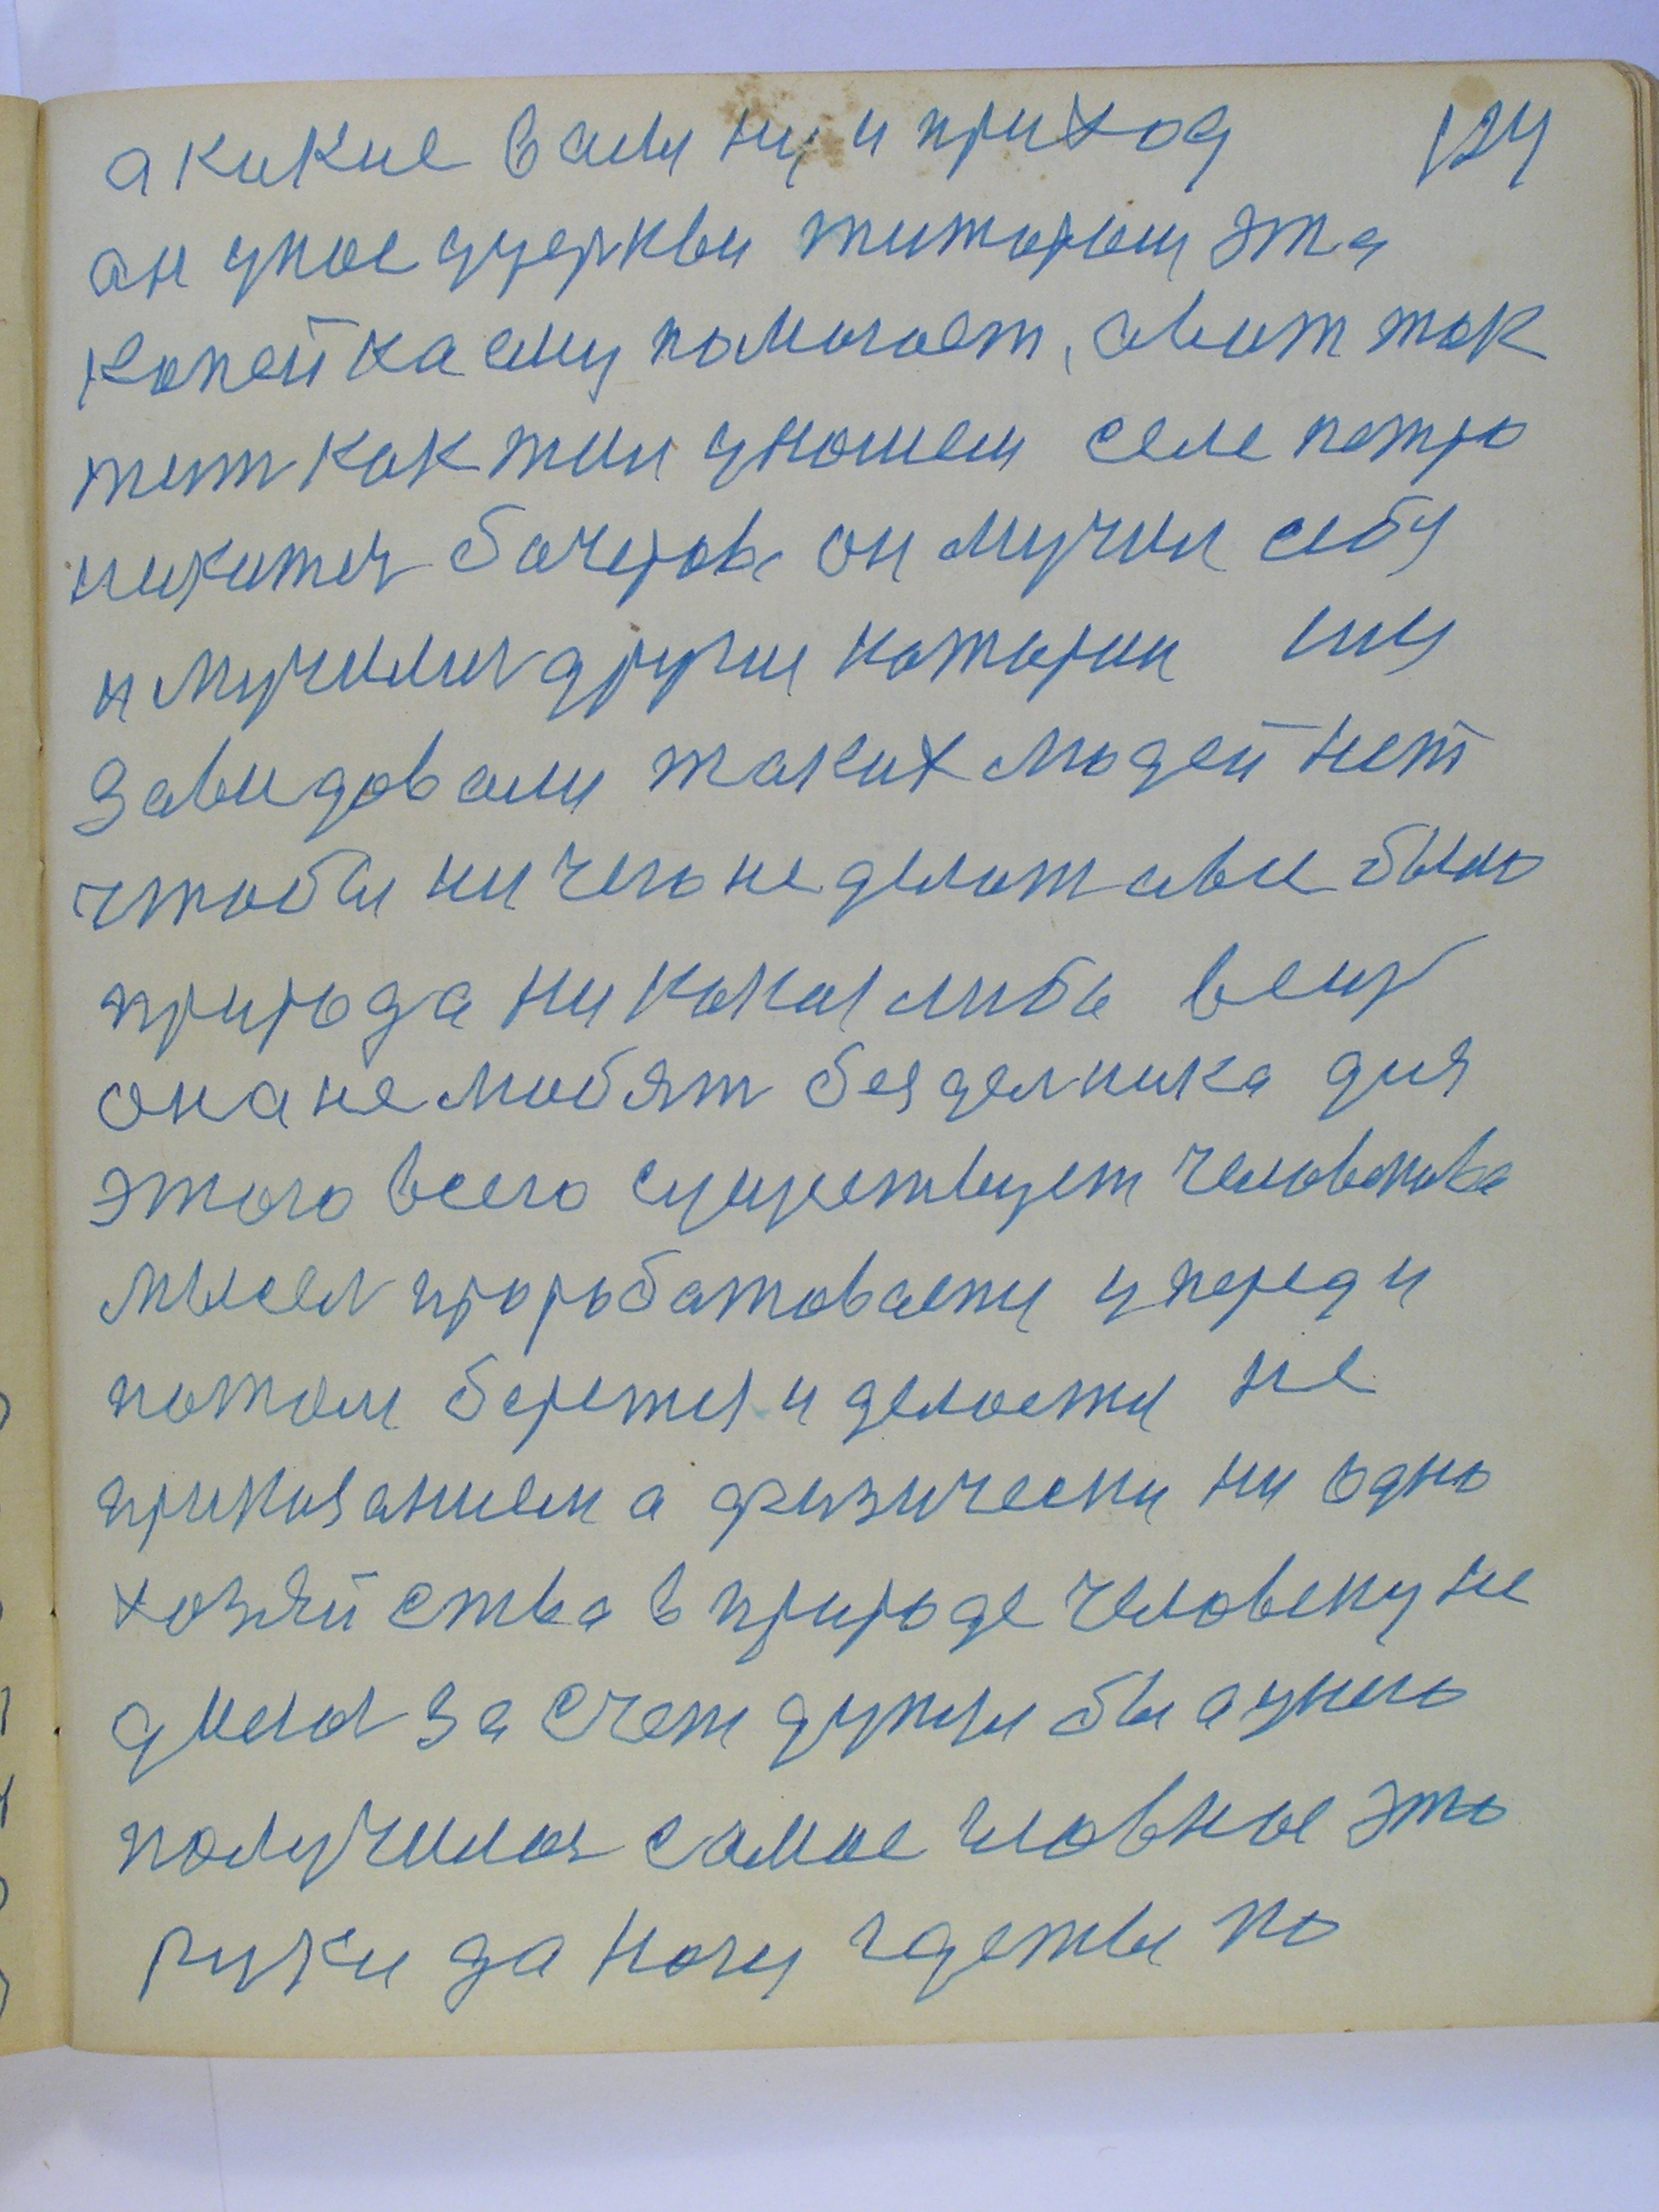 акикие вали ни и приход 124
он упое у церкви титором эта
копейка ему помогает, авот так
тит как жил унашем селе петро
никитич бочеров он мучил себу
и мучилис други каторыи ему
завидовали таких людей нет
чтобы ни чего не делат авсе было
природа ни какая либо вещ
она не любят безделника для
этого всего существует человека
мысел прорабатоваети упереди
потом беретця и делаетя не
приказанием а физически ни одно
хозяйства в природе человеку не
дмеся за счет думки бы а унего
получилося самое главное это
руки да ногы где ты по